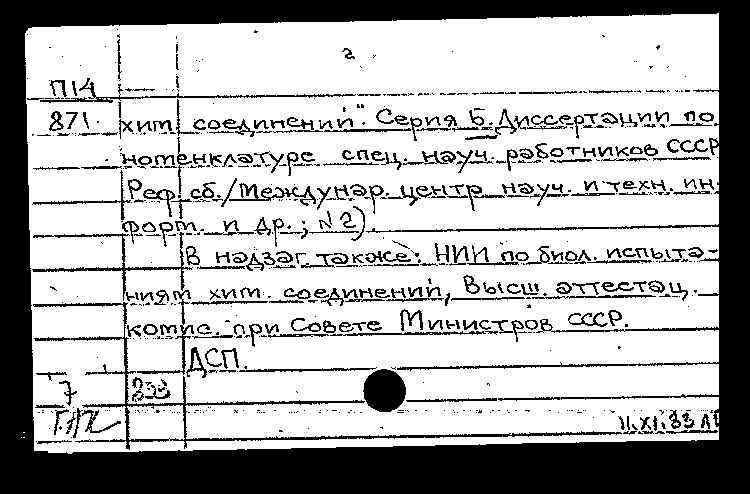 2
П14
871 хим. соединений". Серия Б. Диссертации по
номенклатуре спец. науч. работников СССР
Реф. сб./Междунар. центр науч. и техн. ин-
форм. и др.; №2).
В надзаг. также: НИИ по биол. испыта-
ниям хим. соединений, Высш. аттестац.
комис. при Совете Министров СССР.
ДСП.
7
11.XI.83